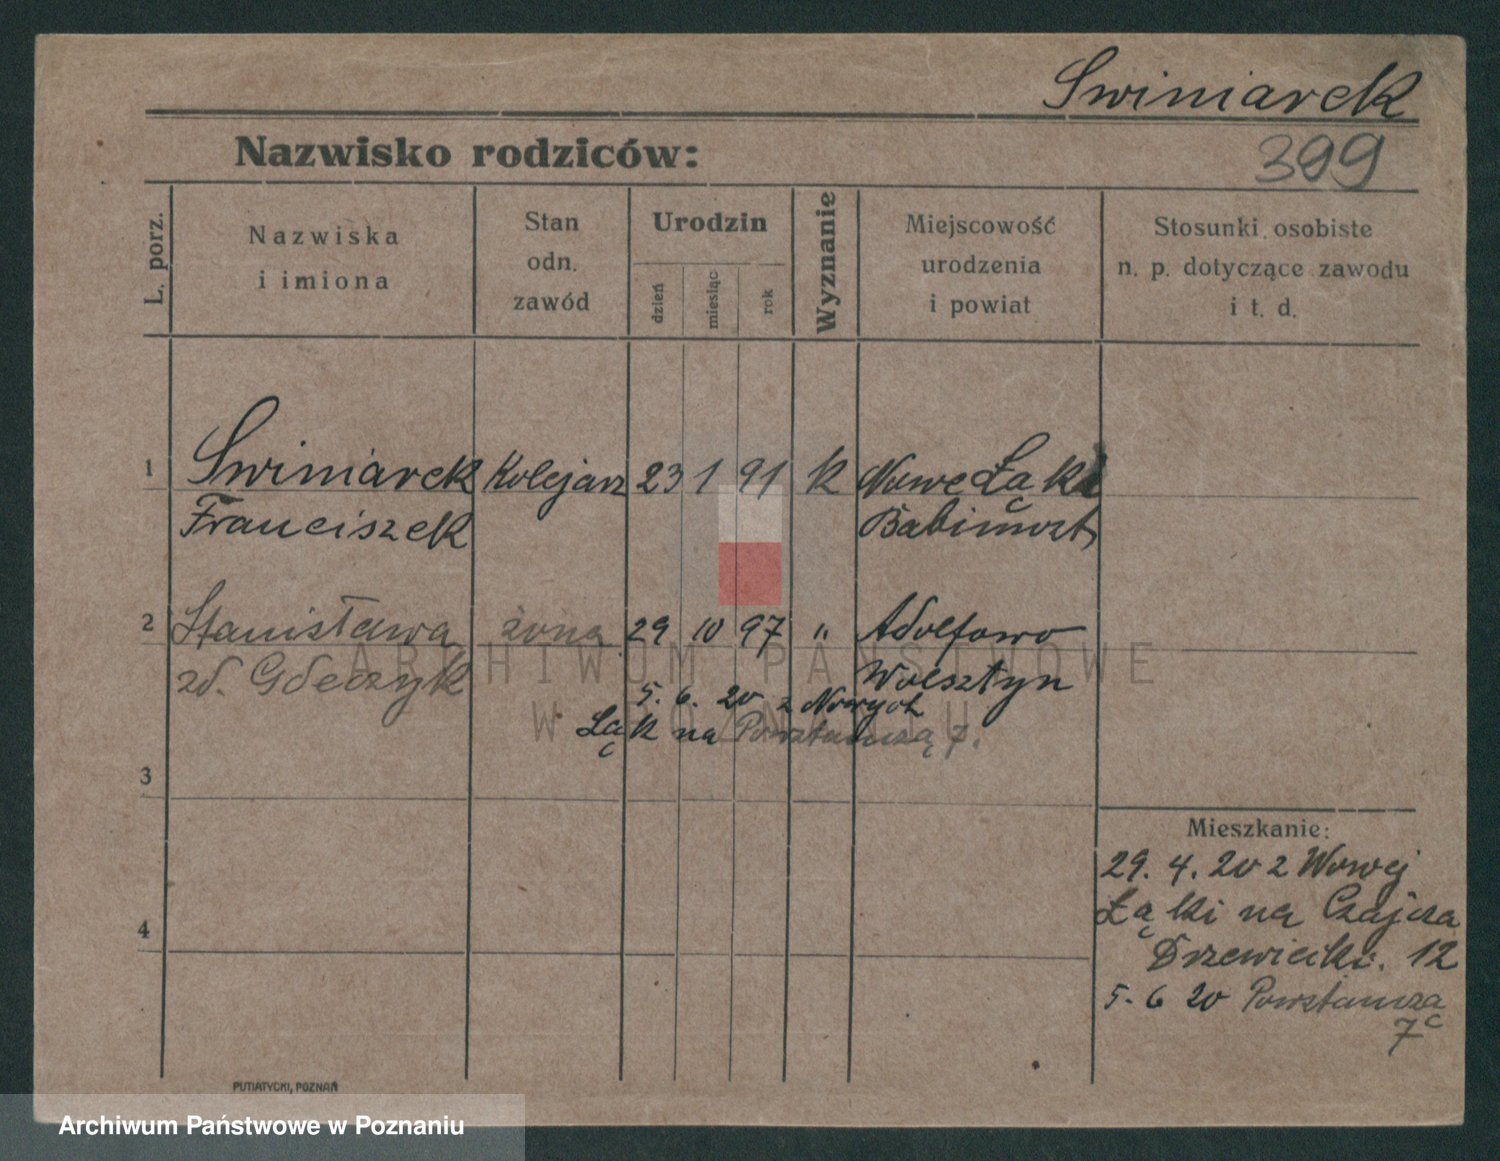 Swiniarek
399
Nazwisko rodziców:
L. porz.
Nazwiska
i imiona
Stan
odn.
zawód
Urodzin
dzień
miesiąc
rok
Wyznanie
Miejscowość
urodzenia
i powiat
Stosunki osobiste
n. p. dotyczące zawodu
i t. d.
1 Swiniarek Kolejarz 23 1 91 k Nowe Łąki
Franciszek Babimost
2 Stanisława żona 29 10 97 " Adolfowo
zd. Gdeczyk Wolsztyn
5. 6. 20 z Nowych
Łąk na Powstańczą 7.
3
4
Mieszkanie:
29. 4. 20 z Nowej
Łąki na Czajcza
12
5. 6 20 Powstańczą
7c
PUTIATYCKI, POZNAŃ
ARCHIWUM PAŃSTWOWE
W POZNANIU
Archiwum Państwowe w Poznaniu